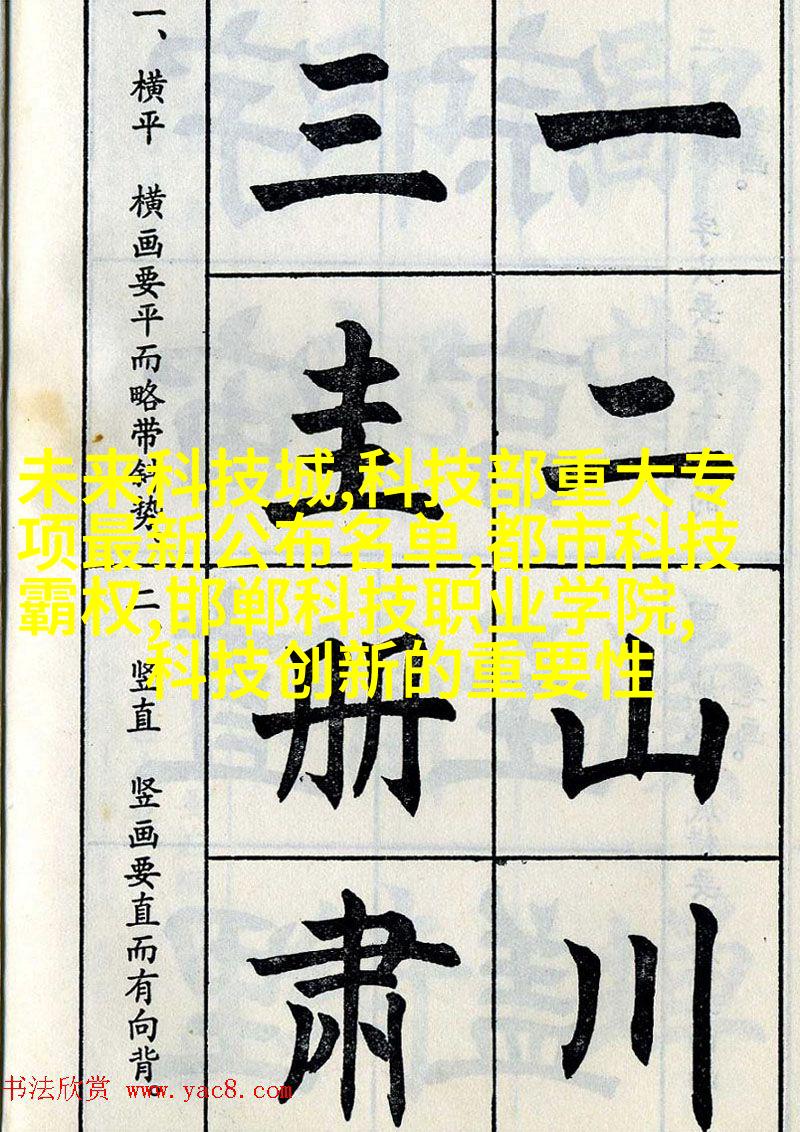 一、横平　横画要平而略带斜势、
二、竖直　竖画要直而有向背。
一
二
山
川
三
圭
册
肃
未来科技城,科技部重大专
项最新公布名单,都市科技
霸权,邯郸科技职业学院,
科技创新的重要性
书法欣赏 www.yac8.com